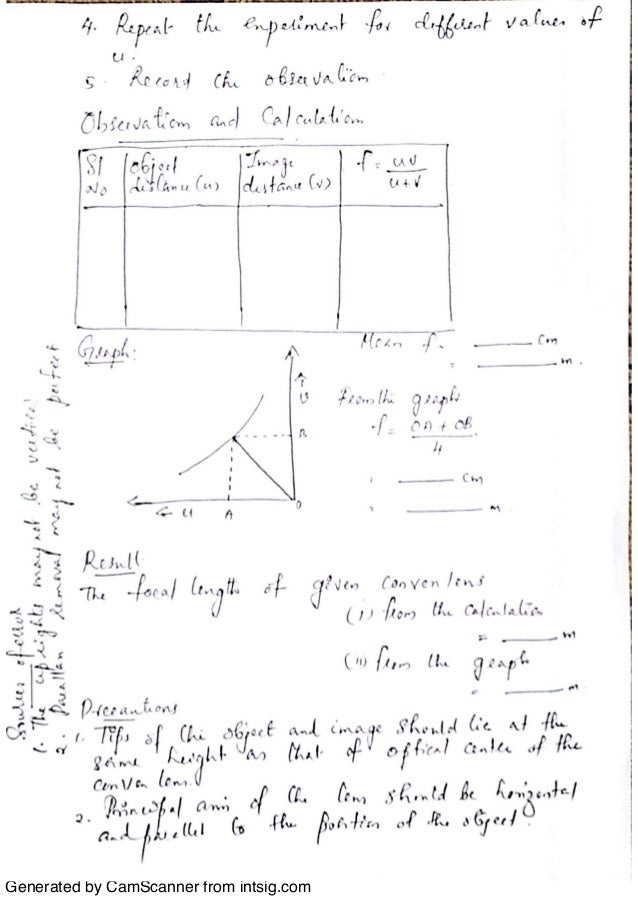 4. Repeat the experiment for different values of
u.
5. Record the observations
Observations and Calculations
Sl No
Object distance (u)
Image distance (v)
f = uv/u+v
Mean f = ____ cm
= ____ m.
Graph:
υ
B
O
A
← u
From the graph
f = OA + OB/4
= ____ cm
= ____ m
Result
The focal length of given convex lens
(i) from the calculation
= ____ m
(ii) from the graph
= ____ m
Precautions
1. Tips of the object and image should lie at the
same height as that of optical center of the
convex lens.
2. Principal axis of the lens should be horizontal
and parallel to the position of the object.
Sources of error
1. The uprights may not be vertical
2. Parallax removal may not be perfect
Generated by CamScanner from intsig.com